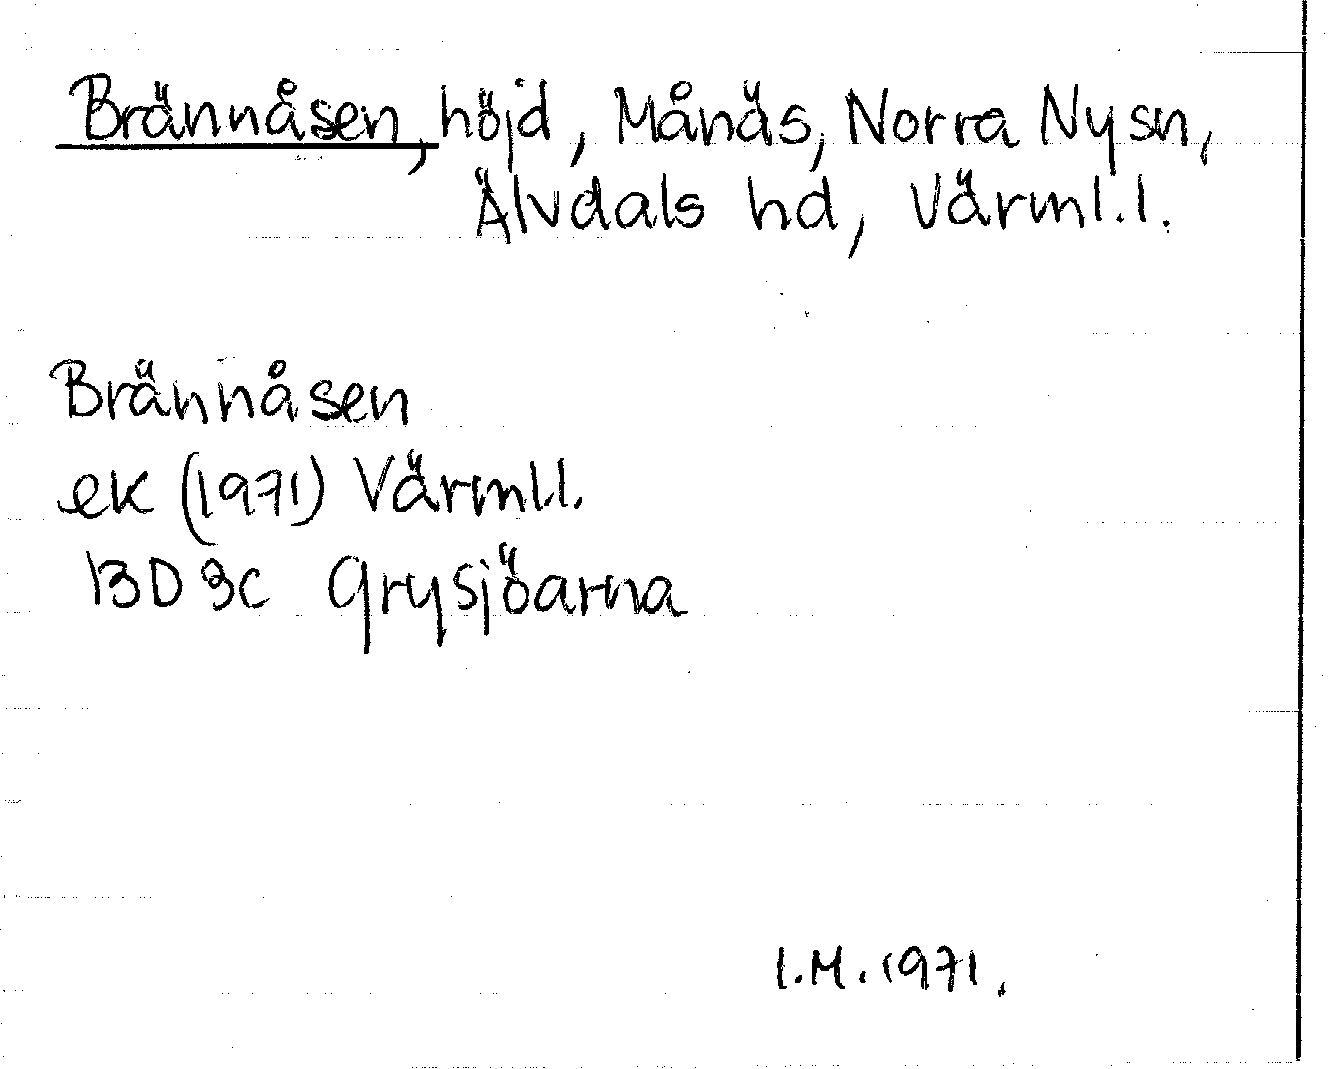 Brännåsen, höjd, Månäs, Norra Ny sn,
Älvdals hd, Värml.l.
Brännåsen
ek (1971) Värml.l.
13D 9c Grysjöarna
I.M. 1971.